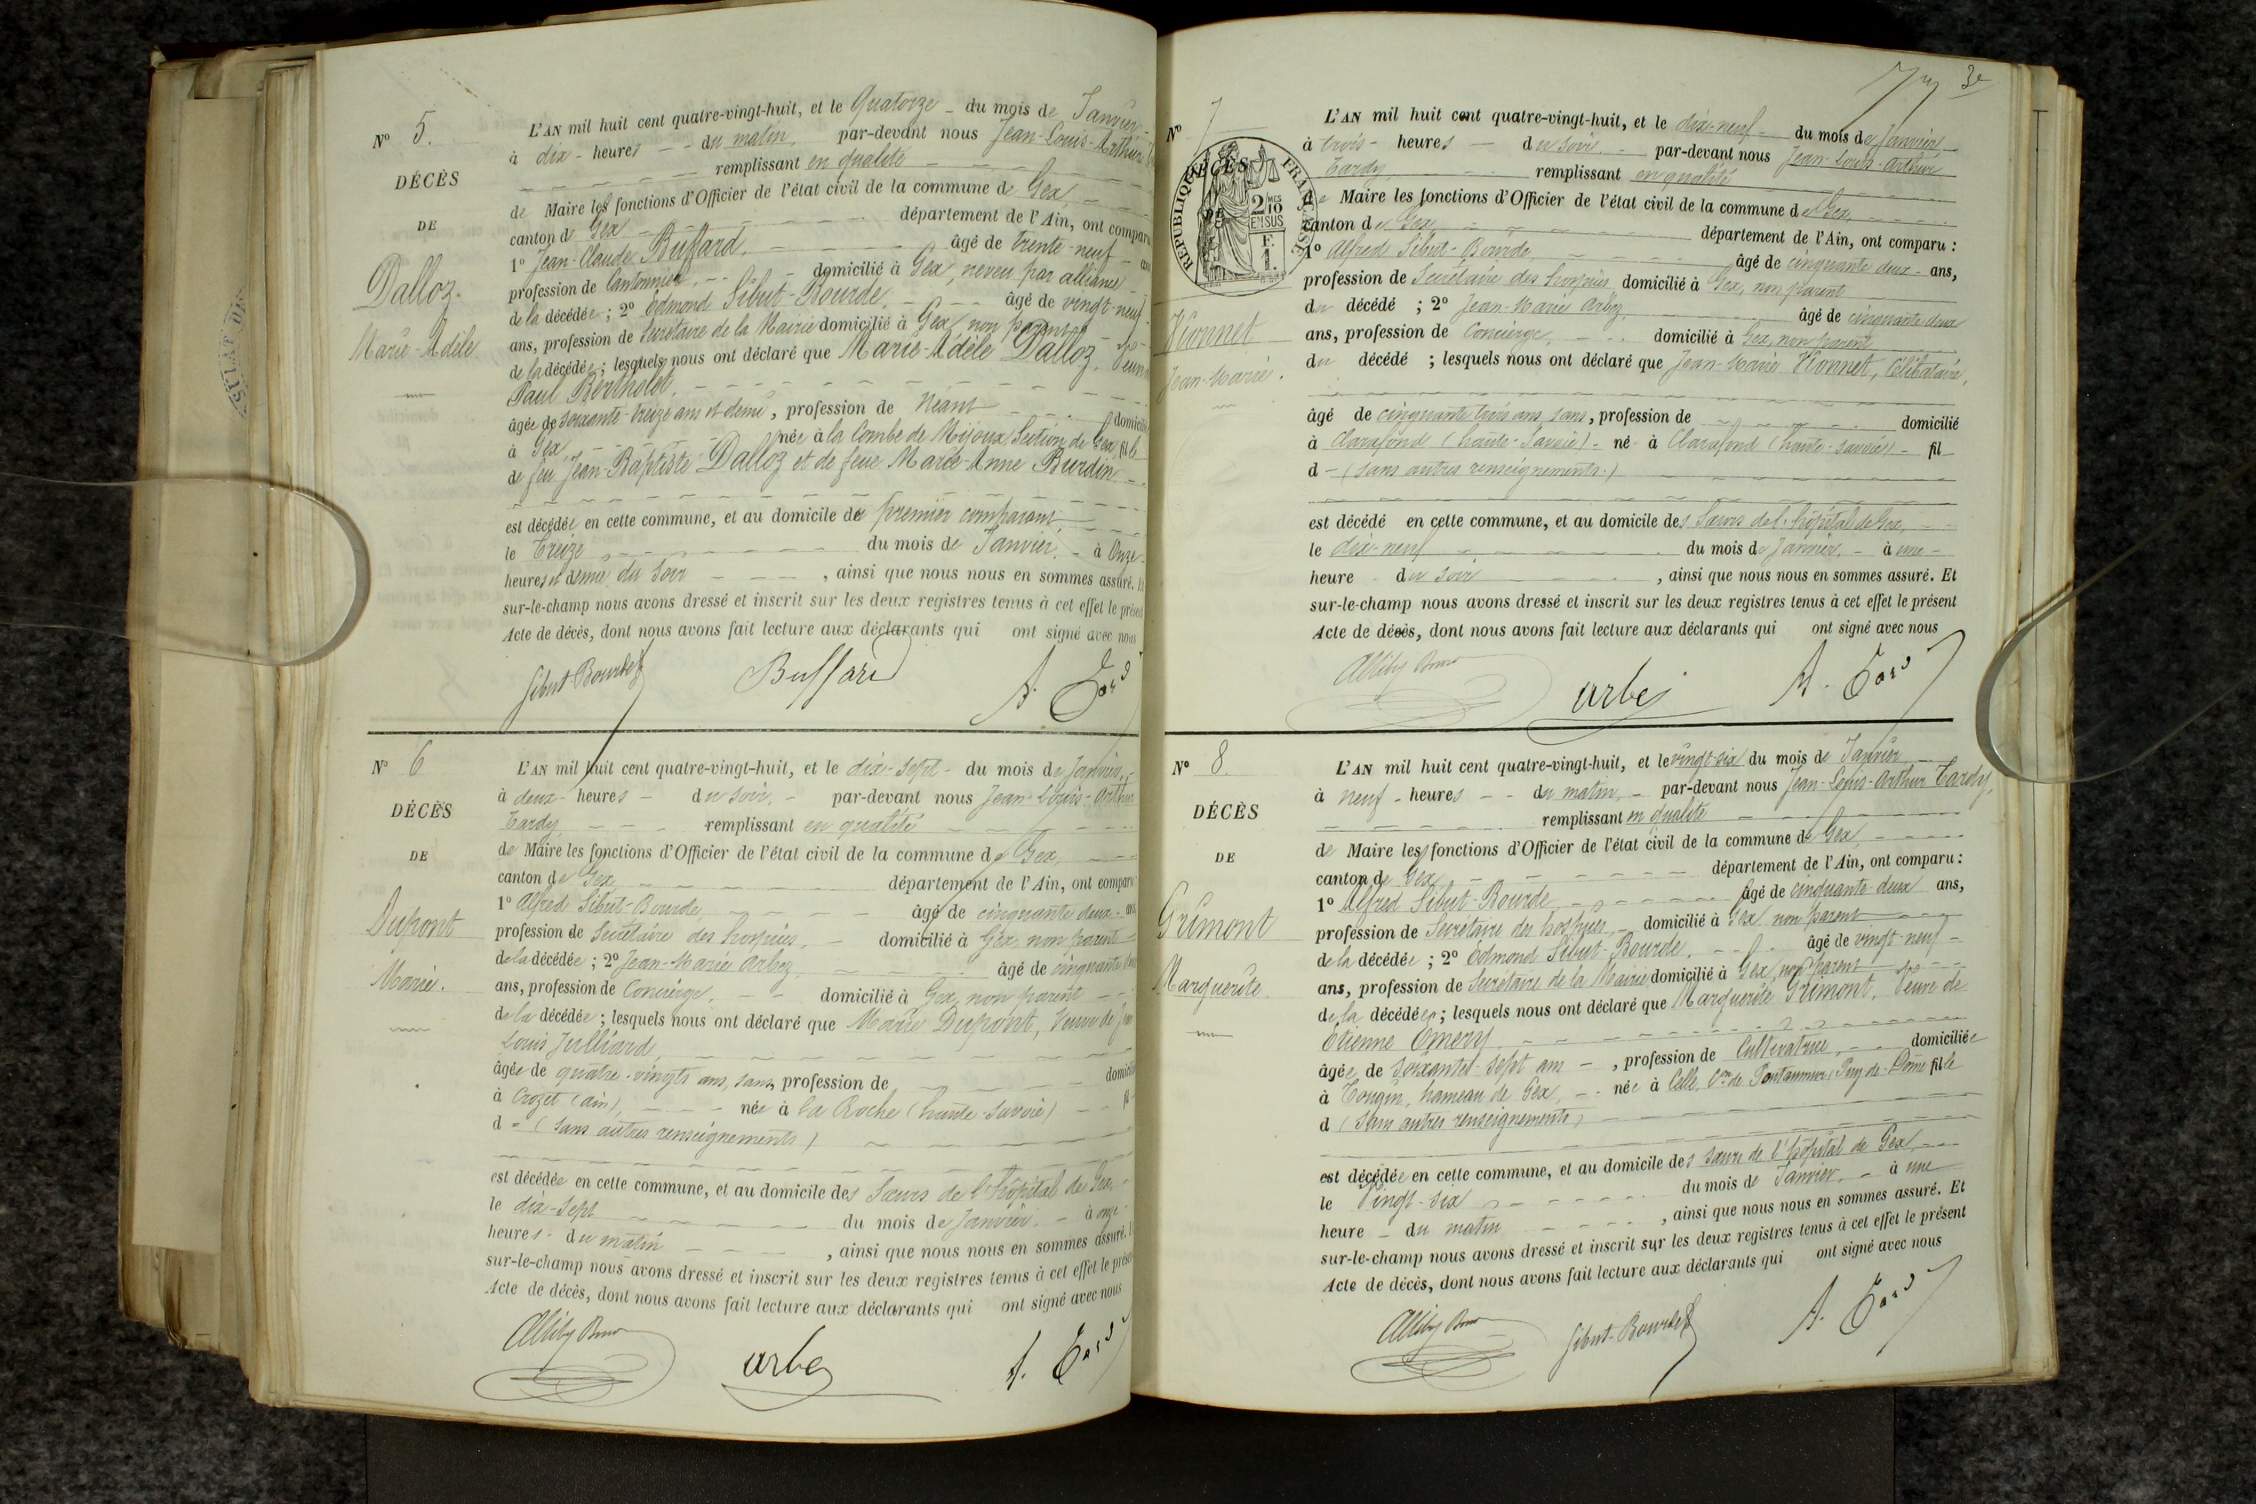 N° 5.
DÉCÈS
DE
Dalloz.
Marie-Adèle
L'AN mil huit cent quatre-vingt-huit, et le Quatorze du mois de Janvier
à dix heures du matin, par-devant nous Jean-Louis-Arthur
remplissant en qualité
de Maire les fonctions d'Officier de l'état civil de la commune de Gex,
canton de Gex département de l'Ain, ont comparu
1° Jean-Claude Buffard, âgé de trente-neuf ans
profession de Cantonnier, domicilié à Gex, neveu par alliance
de la décédée ; 2° Edmond Sibut-Bourde, âgé de vingt-neuf
ans, profession de Secrétaire de la Mairie domicilié à Gex, non parent
de la décédée ; lesquels nous ont déclaré que Marie-Adèle Dalloz, Veuve
Paul Bertholet,
âgée de soixante-treize ans et demie, profession de Néant domiciliée
à Gex, née à la Combe de Mijoux, Section de Gex, fille
de feu Jean-Baptiste Dalloz et de feue Marie-Anne Burdin
est décédée en cette commune, et au domicile du premier comparant,
le Treize du mois de Janvier, à Onze
heures et demie du Soir, ainsi que nous nous en sommes assuré. Et
sur-le-champ nous avons dressé et inscrit sur les deux registres tenus à cet effet le présent
Acte de décès, dont nous avons fait lecture aux déclarants qui ont signé avec nous
Sibut-Bourde Buffard A. Tardy
N° 6
DÉCÈS
DE
Dupont
Marie.
L'AN mil huit cent quatre-vingt-huit, et le dix-sept du mois de Janvier,
à deux heures du soir, par-devant nous Jean-Louis-Arthur
Tardy, remplissant en qualité
de Maire les fonctions d'Officier de l'état civil de la commune de Gex,
canton de Gex département de l'Ain, ont comparu
1° Alfred Sibut-Bourde, âgé de cinquante deux ans,
profession de Secrétaire des hospices, domicilié à Gex, non parent
de la décédée ; 2° Jean-Marie Arbez âgé de cinquante deux
ans, profession de Concierge, domicilié à Gex, non parent
de la décédée ; lesquels nous ont déclaré que Marie Dupont, Veuve de Jean
Louis Julliard,
âgée de quatre-vingts ans, sans profession de domiciliée
à Crozet (ain), née à la Roche (haute-Savoie) fil
d (sans autres renseignements)
est décédée en cette commune, et au domicile des Sœurs de l'hôpital de Gex,
le dix-sept du mois de Janvier à onze
heures du matin, ainsi que nous nous en sommes assuré. Et
sur-le-champ nous avons dressé et inscrit sur les deux registres tenus à cet effet le présent
Acte de décès, dont nous avons fait lecture aux déclarants qui ont signé avec nous
arbez A. Tardy
3e
N° 7
DÉCÈS
DE
RÉPUBLIQUE FRANÇAISE
2 MES
10
EN SUS
F.
1.
Vionnet
Jean-Marie.
L'AN mil huit cent quatre-vingt-huit, et le dix-neuf du mois de Janvier
à trois heures du soir par-devant nous Jean-Louis-Arthur
Tardy, remplissant en qualité
de Maire les fonctions d'Officier de l'état civil de la commune de Gex,
canton de Gex département de l'Ain, ont comparu :
1° Alfred Sibut-Bourde, âgé de cinquante deux ans,
profession de Secrétaire des hospices domicilié à Gex, non parent
du décédé ; 2° Jean-Marie Arbez, âgé de cinquante-deux
ans, profession de Concierge, domicilié à Gex, non parent
du décédé ; lesquels nous ont déclaré que Jean-Marie Vionnet, Célibataire,
âgé de cinquante trois ans, sans, profession de domicilié
à Clarafond (haute-Savoie) né à Clarafond (haute-savoie) fil
d (sans autres renseignements.)
est décédé en cette commune, et au domicile des Sœurs de l'hôpital de Gex,
le dix-neuf du mois de Janvier, à une
heure du soir, ainsi que nous nous en sommes assuré. Et
sur-le-champ nous avons dressé et inscrit sur les deux registres tenus à cet effet le présent
Acte de décès, dont nous avons fait lecture aux déclarants qui ont signé avec nous
arbez A. Tardy
N° 8.
DÉCÈS
DE
Grimont
Marguerite
L'AN mil huit cent quatre-vingt-huit, et le vingt-six du mois de Janvier
à neuf heures du matin, par-devant nous Jean-Louis-Arthur Tardy,
remplissant en qualité
de Maire les fonctions d'Officier de l'état civil de la commune de Gex,
canton de Gex département de l'Ain, ont comparu :
1° Alfred Sibut-Bourde, âgé de cinquante-deux ans,
profession de Secrétaire des hospices, domicilié à Gex non parent
de la décédée ; 2° Edmond Sibut-Bourde, âgé de vingt-neuf
ans, profession de Secrétaire de la Mairie domicilié à Gex, non parent
de la décédée ; lesquels nous ont déclaré que Marguerite Grimont, Veuve de
Etienne Emery,
âgée de soixante-sept ans, profession de Cultivatrice, domiciliée
à Tougin, hameau de Gex, née à Celle, Con de Pontaumur, Puy-de-Dôme fille
d (sans autres renseignements)
est décédée en cette commune, et au domicile des sœurs de l'hôpital de Gex,
le Vingt-six du mois de Janvier, à une
heure du matin, ainsi que nous nous en sommes assuré. Et
sur-le-champ nous avons dressé et inscrit sur les deux registres tenus à cet effet le présent
Acte de décès, dont nous avons fait lecture aux déclarants qui ont signé avec nous
Sibut-Bourde A. Tardy